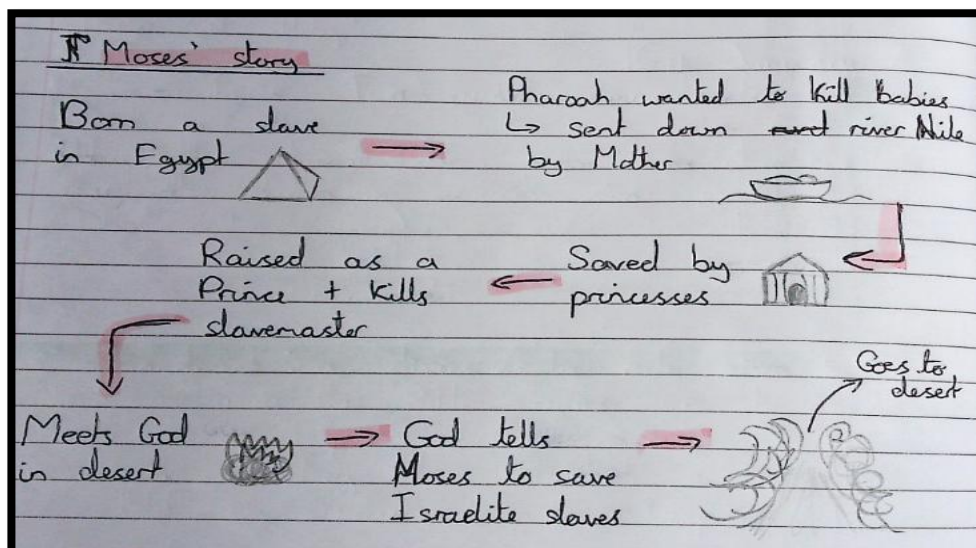 Moses' story
Born a slave
in Egypt
Pharoah wanted to kill babies
↳ sent down river Nile
by Mother
Saved by
princesses
Raised as a
Prince + kills
slavemaster
Meets God
in desert
God tells
Moses to save
Israelite slaves
Goes to
desert